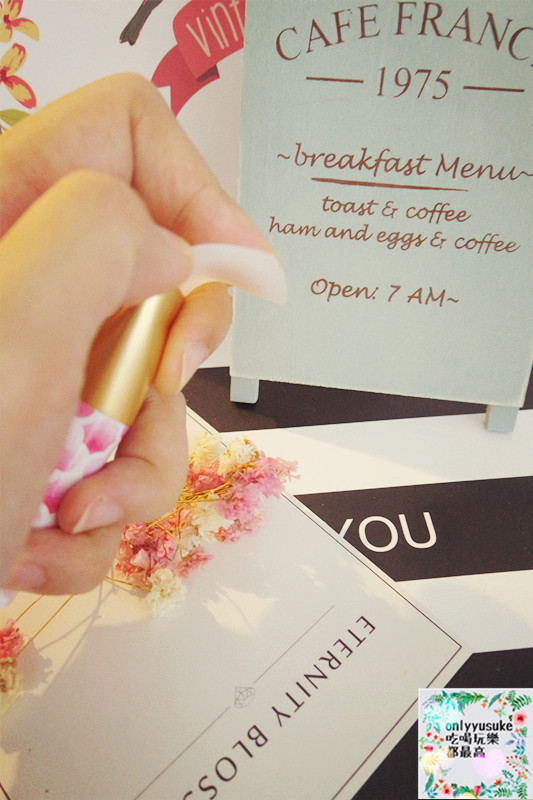 vint
CAFE FRANC
1975
~breakfast Menu~
toast & coffee
ham and eggs & coffee
Open: 7 AM~
YOU
ETERNITY BLOSS
onlyyusuke
吃喝玩樂
都最高